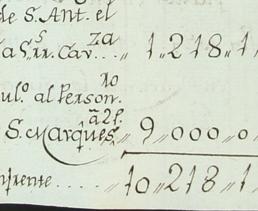 de S. Ant. el
a S.rr. Car.za ... 1.218.1
ul.o al Person.
S. Marques ,, 9,000,0
nfrente .... ,, 10,,218,,1